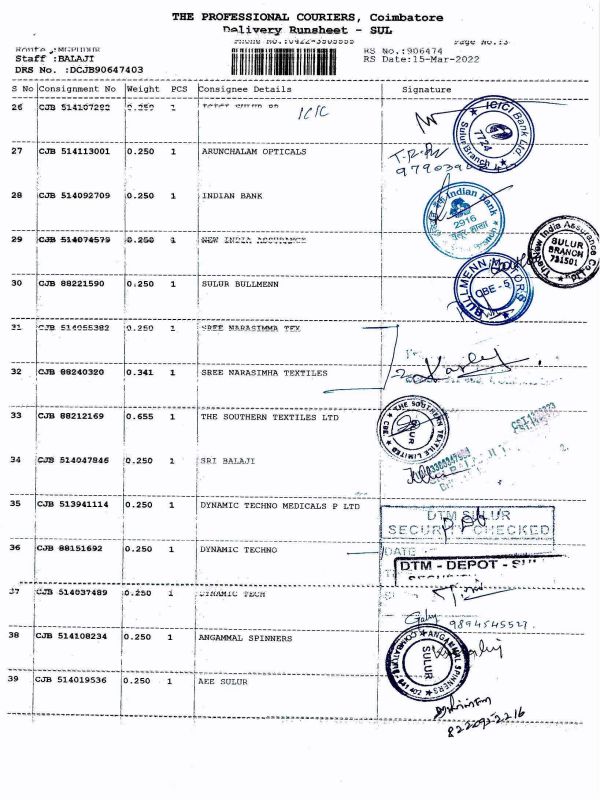 THE PROFESSIONAL COURIERS, Coimbatore
Delivery Runsheet - SUL
Page No.:3
Staff :BALAJI
RS No.:906474
RS Date:15-Mar-2022
DRS No. :DCJB90647403
S No Consignment No Weight PCS Consignee Details Signature
26 CJB 514107292 0.250 1 ICIC
ICICI Bank Ltd
7724
Sulur Branch
27 CJB 514113001 0.250 1 ARUNCHALAM OPTICALS
28 CJB 514092709 0.250 1 INDIAN BANK
Indian Bank
2916
29 CJB 514074579 0.250 1 NEW INDIA ASSURANCE
The New India Assurance Co. Ltd
SULUR
BRANCH
721501
30 CJB 88221590 0.250 1 SULUR BULLMENN
BULLMENN MOTORS
OBE - 5
31 CJB 514055382 0.250 1 SREE NARASIMMA TEX
32 CJB 88240320 0.341 1 SREE NARASIMHA TEXTILES
33 CJB 88212169 0.655 1 THE SOUTHERN TEXTILES LTD
THE SOUTHERN TEXTILE LIMITED
CBE
SULUR
34 CJB 514047846 0.250 1 SRI BALAJI
35 CJB 513941114 0.250 1 DYNAMIC TECHNO MEDICALS P LTD
DTM SULUR
SECURITY CHECKED
DATE
36 CJB 88151692 0.250 1 DYNAMIC TECHNO
DTM - DEPOT - SUL
37 CJB 514037489 0.250 1 DYNAMIC TECH
9894545527
38 CJB 514108234 0.250 1 ANGAMMAL SPINNERS
ANGAMMAL SPINNERS
SULUR
39 CJB 514019536 0.250 1 AEE SULUR